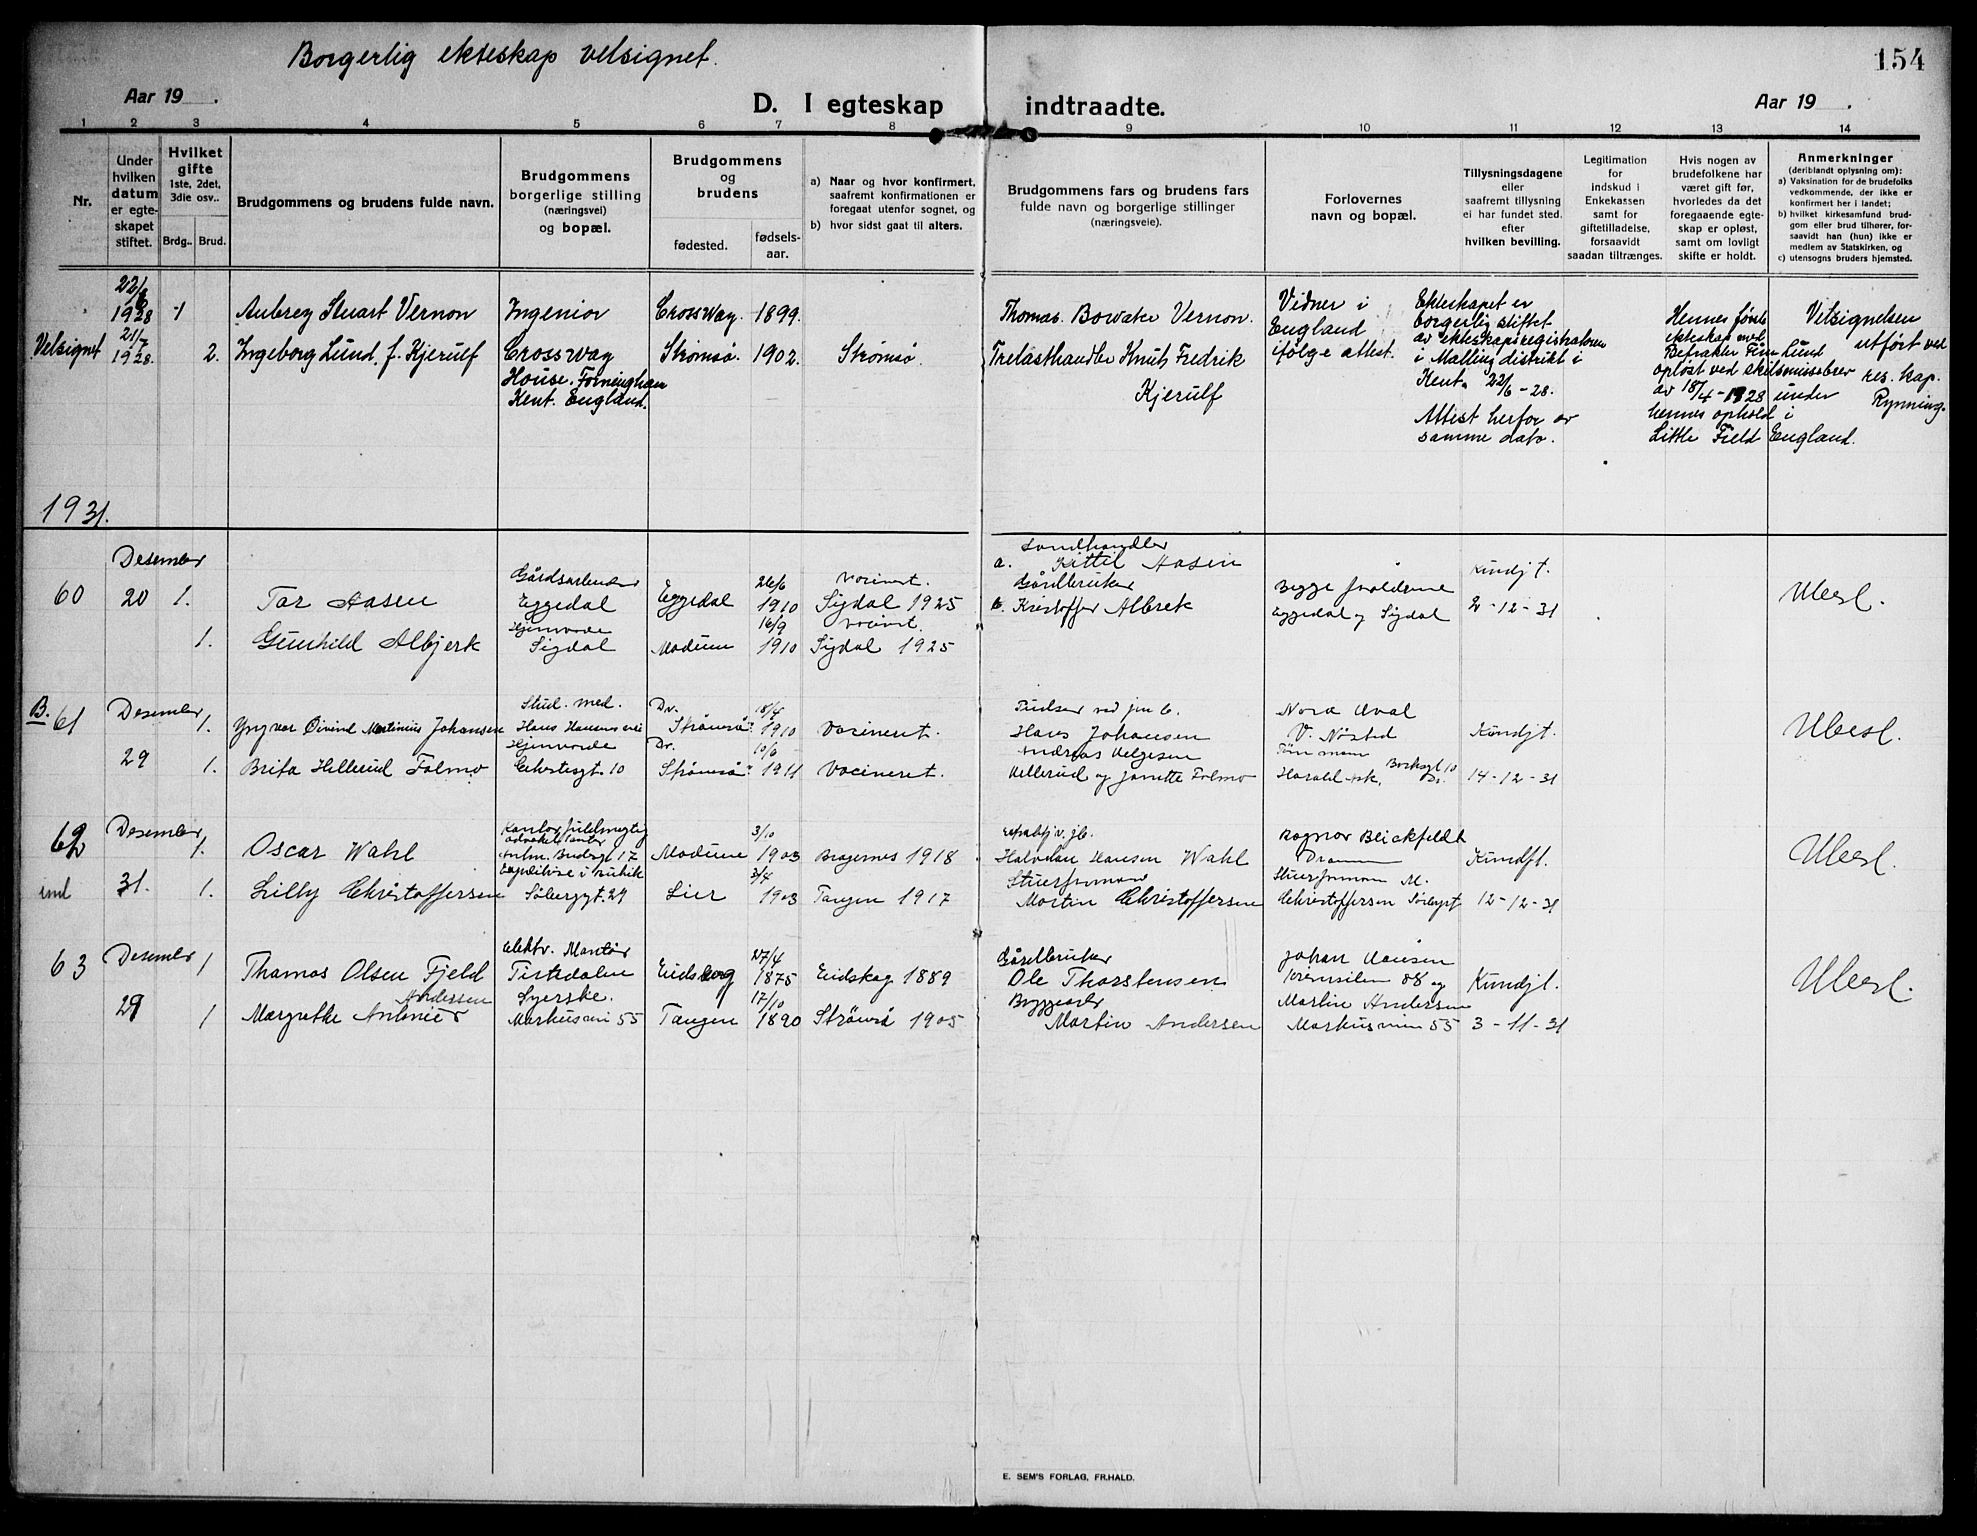 Borgerlig ekteskap velsignet.
154
Aar 19 .
D. I egteskap indtraadte.
Aar 19 .
1 2 3 4 5 6 7 8 9 10 11 12 13 14
Nr.
Under
hvilken
datum
er egte-
skapet
stiftet.
Hvilket
gifte
1ste, 2det,
3die osv..
Brdg.. Brud.
Brudgommens og brudens fulde navn.
Brudgommens
borgerlige stilling
(næringsvei)
og bopæl.
Brudgommens
og
brudens
fødested.
fødsels-
aar.
a) Naar og hvor konfirmert,
saafremt konfirmationen er
foregaat utenfor sognet, og
b) hvor sidst gaat til alters.
Brudgommens fars og brudens fars
fulde navn og borgerlige stillinger
(næringsveie).
Forlovernes
navn og bopæl.
Tillysningsdagene
eller
saafremt tillysning
ei har fundet sted.
efter
hvilken bevilling.
Legitimation
for
indskud i
Enkekassen
samt for
giftetilladelse,
forsaavidt
saadan tiltrænges.
Hvis nogen av
brudefolkene har
været gift før,
hvorledes da det
foregaaende egte-
skap er opløst,
samt om lovligt
skifte er holdt.
Anmerkninger
(deriblandt oplysning om):
a) Vaksination for de brudefolks
vedkommende, der ikke er
konfirmert her i landet;
b) hvilket kirkesamfund brud-
gom eller brud tilhører, for-
saavidt han (hun) ikke er
medlem av Statskirken, og
c) utensogns bruders hjemsted.
22/6
1928
1
Aubrey Stuart Vernon
Ingeniør
Crossway. 1899.
Thomas Bowater Vernon.
Velsignet
21/7
1928.
2.
Ingeborg Lund, f. Kjerulf
Crossway
House. Forningham
Kent. England.
Strømsø. 1902.
Strømsø.
Trelasthandler Knut Fredrik
Kjerulf
Vidner i
England
ifølge attest.
Ekteskapet er
borgerlig stiftet
av ekteskapsregistratoren
i Malling distrikt i
Kent. 22/6-28.
Attest herfor av
samme dato.
Hennes første
ekteskap med
Befrakter Finn Lund
opløst ved skilsmissebrev
av 18/4-1928 under
hennes ophold i
Little Field England.
Velsignelsen
utført ved
res. kap.
Rynning.
1931.
60
Desember
20
1.
Tor Aasen
Gårdsarbeider
Eggedal
Eggedal
26/6
1910
Vacinert.
Sigdal 1925
a. Landhandler
Kittil Aasen
1.
Gunhild Albjerk
Hjemvorde
Sigdal
Modum
16/9
1910
Vacinert.
Sigdal 1925
Gårdbruker
b. Kristoffer Albrek
Begge foreldrene
Eggedal og Sigdal
Kundjt.
2-12-31
Ubesl.
B. 61
Desember
29
1.
Yngvar Øivind Martinius Johansen
Stud. med.
Dr.
Strømsø
18/4
1910
Vacineret.
Hans Johansen
1.
Brita Hillerud Folmo
Hjemvorde
10
Dr.
Strømsø
1911
Vacineret.
Hellerud og Janette Folmo
V. Nøsted
Kundjt.
14-12-31
Ubesl.
62
ind
Desember
31.
1.
Oscar Wahl
Modum
3/10
1903
Bragernes 1918
Halvdan Hansen Wahl
1.
Lilly Christoffersen
Lier
3/4
1903
Tangen 1917
Martin Christoffersen
Ragnar Blickfeldt
Dramm
Christoffersen
Kundjt.
12-12-31
Ubesl.
63
Desember
29
1
Thomas Olsen Fjeld
elektr. Montør
Tistedalen
27/4
1875
Eidskog 1889
Gårdbruker
Ole Thorstensen
1
Andersen
Margrethe
Syerske.
55
Tangen
17/10
1890
Strømsø 1905
Martin Andersen
Johan Hansen
88 og
Martin Andersen
55
Kundjt.
3-11-31
Ubesl.
E. SEM'S FORLAG, FR.HALD.